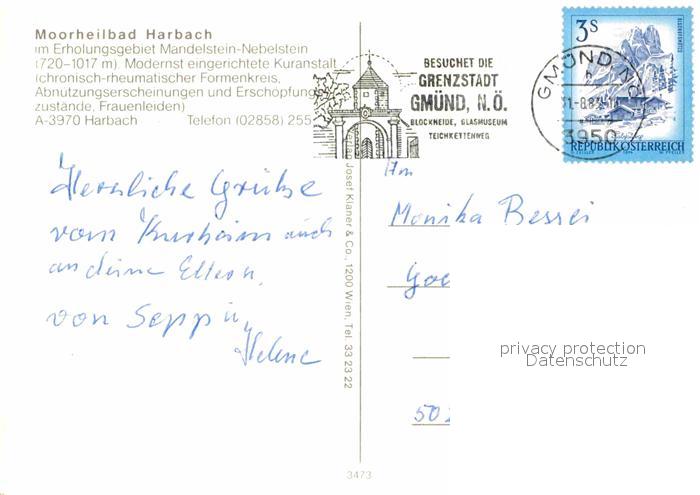 Moorheilbad Harbach
im Erholungsgebiet Mandelstein-Nebelstein
(720–1017 m). Modernst eingerichtete Kuranstalt
(chronisch-rheumatischer Formenkreis,
Abnutzungserscheinungen und Erschöpfung
zustände, Frauenleiden)
A-3970 Harbach Telefon (02858) 255
BESUCHET DIE
GRENZSTADT
GMÜND, N.Ö.
BLOCKHEIDE, GLASMUSEUM
TEICHKETTENWEG
GMÜND NÖ
3950
3S
REPUBLIK ÖSTERREICH
Herzliche Grüße
vom Kurheim auch
an deine Eltern,
von Sepp u,
Helene
Verlag Josef Klaner & Co., 1200 Wien, Tel. 33 23 22
An
Monika Bessei
Goe
privacy protection
Datenschutz
50
3473